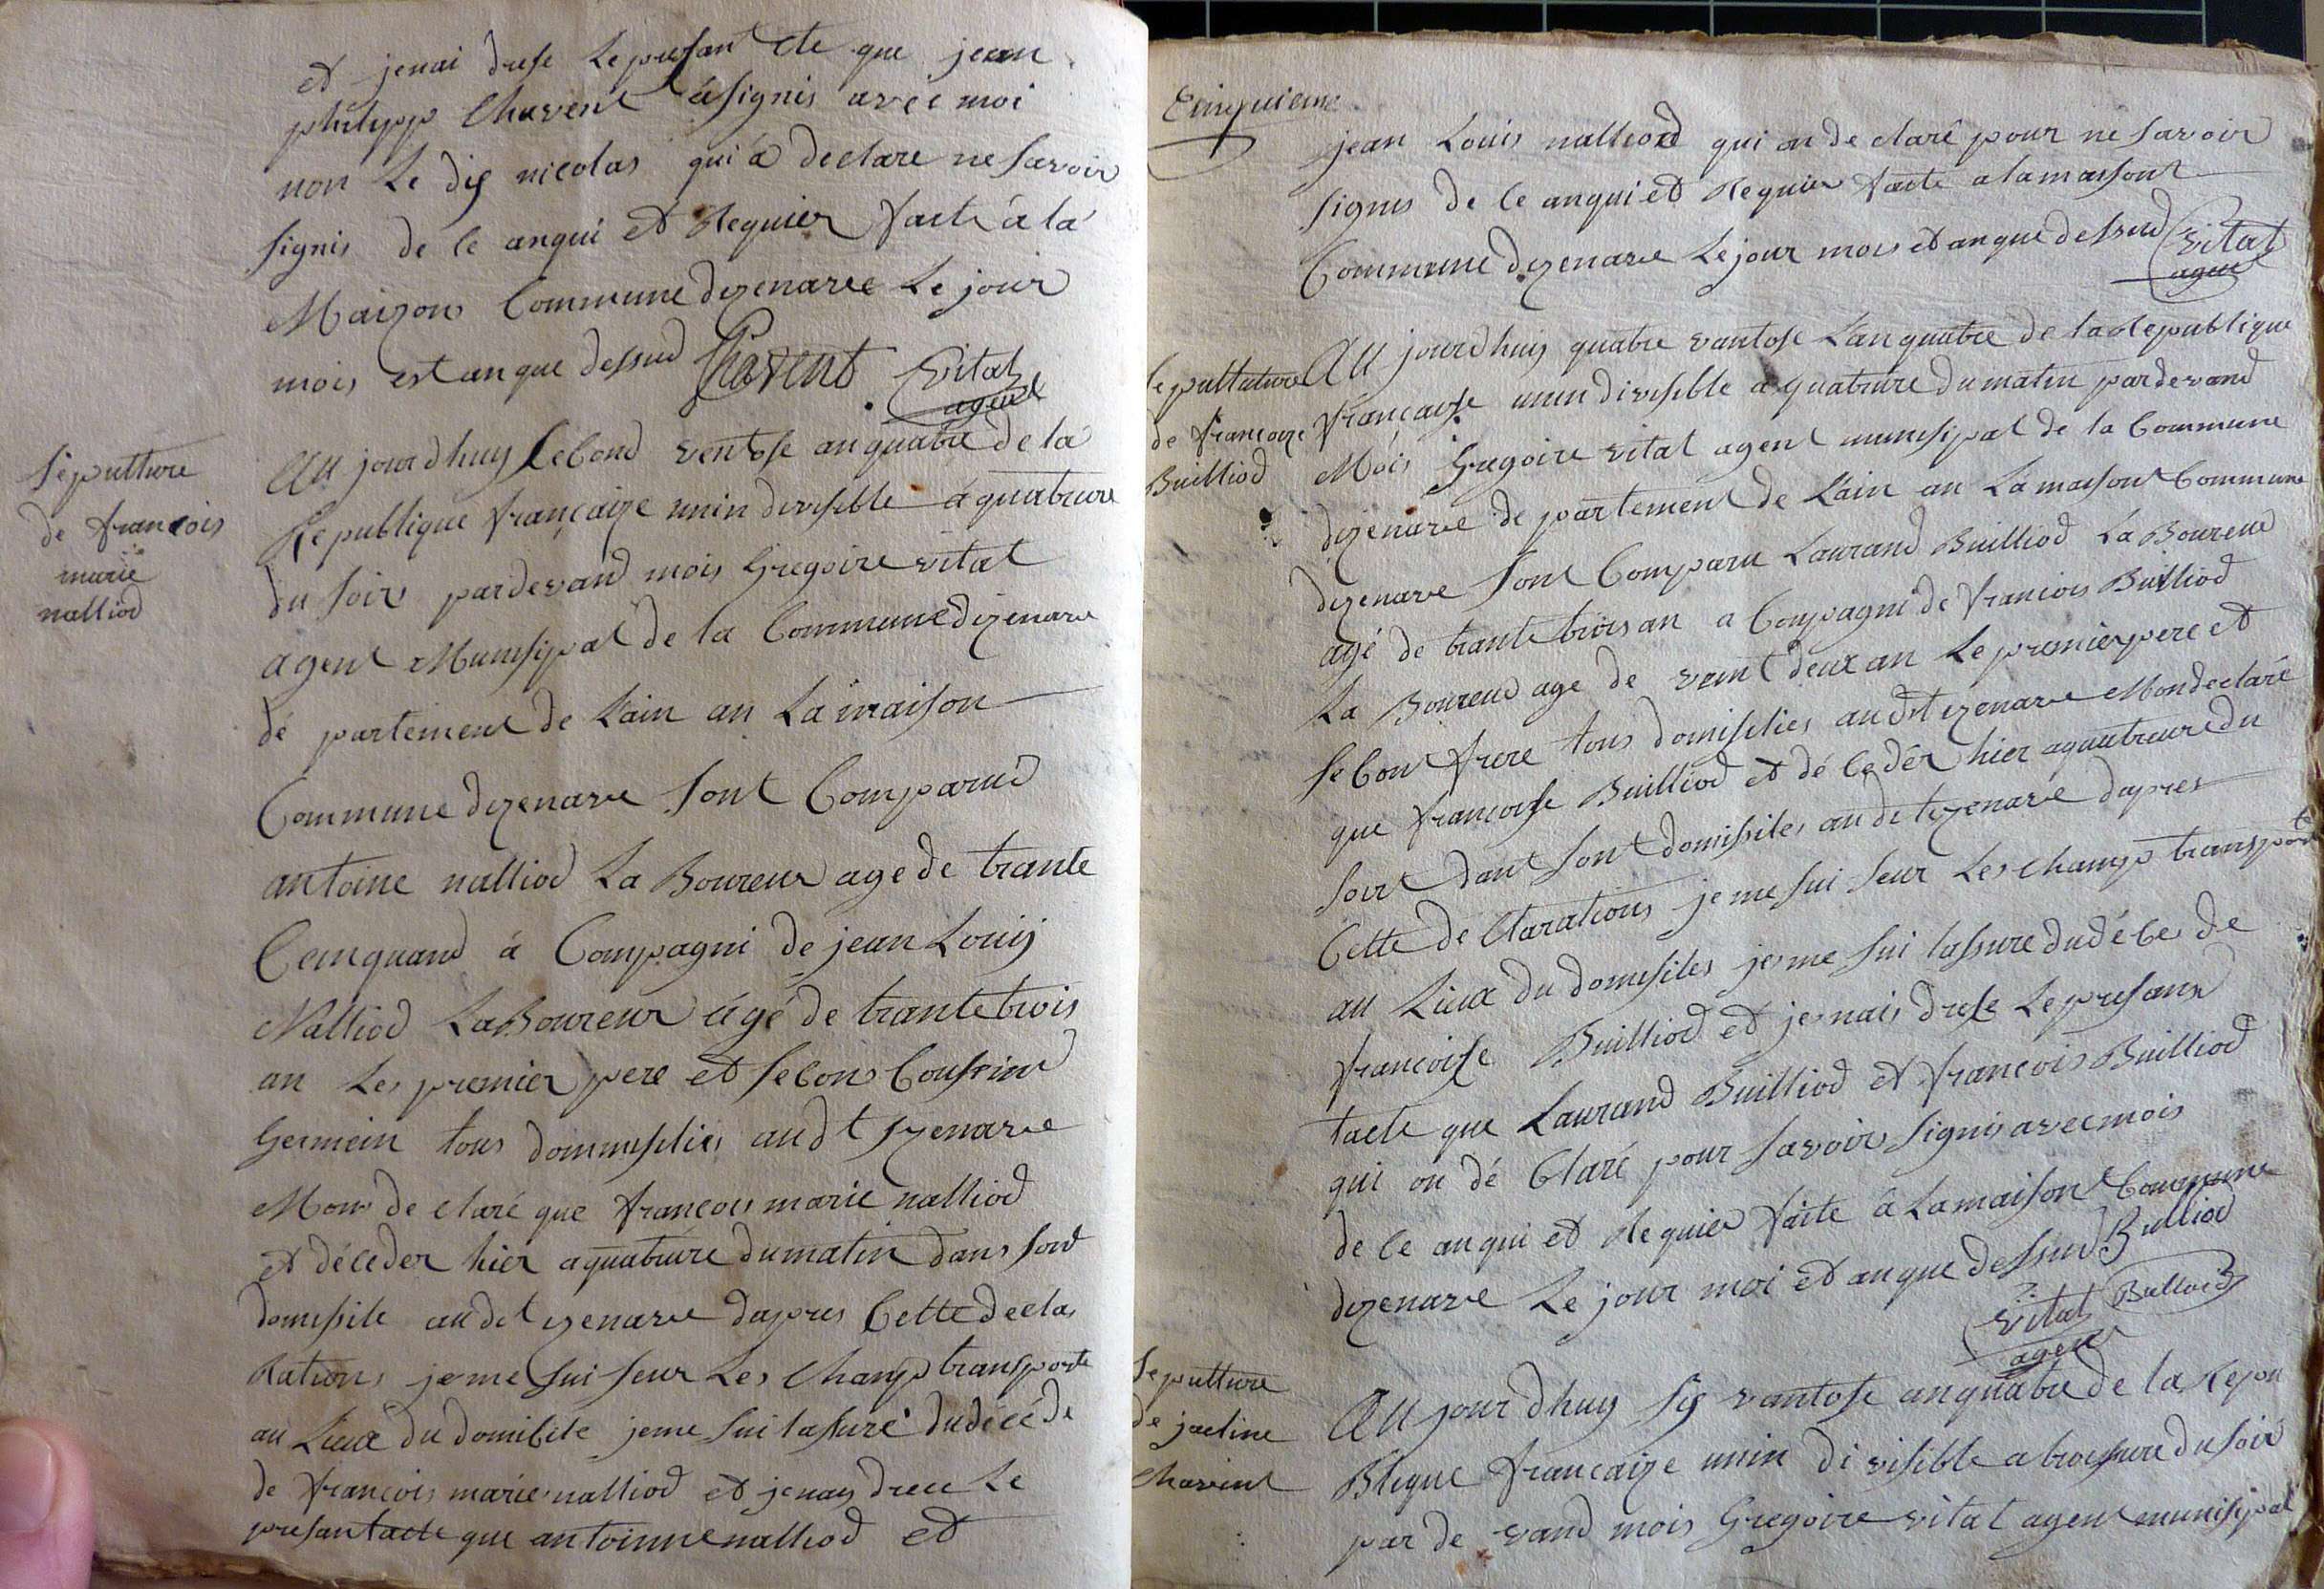 et jenai drese le presant cte que jean
philipp Chavent a signis avec moi
non le dis nicolas qui a declare ne savoir
signis de ce anqui et Requier faite à la
Maizons Commune dizenave le jour
mois est an que dessud Chavent Vital
agent
Sépulture
de francois
marie
nalliod
Au jourdhuy Second ventose an quatre de la
Republique françaize unin divisible à quatreure
du soir pardevand mois Gregoire vital
agent Munisipal de la Commune dizenave
dé partement de L'ain an La maison
Commune dizenave sont Comparud
antoine nalliod La Boureur age de trante
Cemquand à Compagni de jean Louis
Nalliod LaBoureur àgé de trante trois
an Les premier pere et secons Coussind
Germein tous dommisilies audt yzenave
Mons de claré que francois marie nalliod
et déceder hier a quatreure du matin dans sont
domisile au dit izenave dapres Cette decla
Rations je me sui seur Les Champ transporte
au Lieux du domicile je me sui lassuré du décé de
de francois marie nalliod et jenay drece Le
presant lacte que antoinne nalliod et
Cinquieme
jean Louis nalliod qui on declaré pour ne savoir
signis de ce anqui et Requier faite a la maisont
Commune dizenave Le jour mois et an que dessud Vital
agent
sepultature
de francoize
Builliod
Au jourdhuy quatre vantose L'an quatre de la Republique
françaisse unin divisible a quatreure du matin pardevand
Mois Gregoire vital agent munisipal de la Commune
dizenave de partement de L'ain an La maisont Commune
dizenave sont Comparu Laurand Builliod La Boureud
agé de trante trois an a Compagni de francois Builliod
La Boureud age de vaint deux an Le premier pere et
secont frere tous domisilies audt izenave Mon declaré
que francoise Builliod et dé ceder hier a quatreure du
soirt dant sont domisiles au dit izenave dapres
Cette de Clarations je me sui seur Les champ transporte
au Lieux du domisiles je me sui lassure du déces de
francoise Builliod et je nais drese Le presans
lacte que Laurand Builliod et francois Builliod
qui on dé Claré pour savoir signis avec mois
de ce an qui et Requier faite â La maisont Commune
dizenave Le jour moi et an que dessud Bulliod
Vital Bulliod
agent
Sepulture
de jacline
Chavent
Au jourdhuy sis vantose an quatre de la Repu
Blique francaize unin di visible a troissure du soir
par de vand mois Gregoire vital agent munisipal